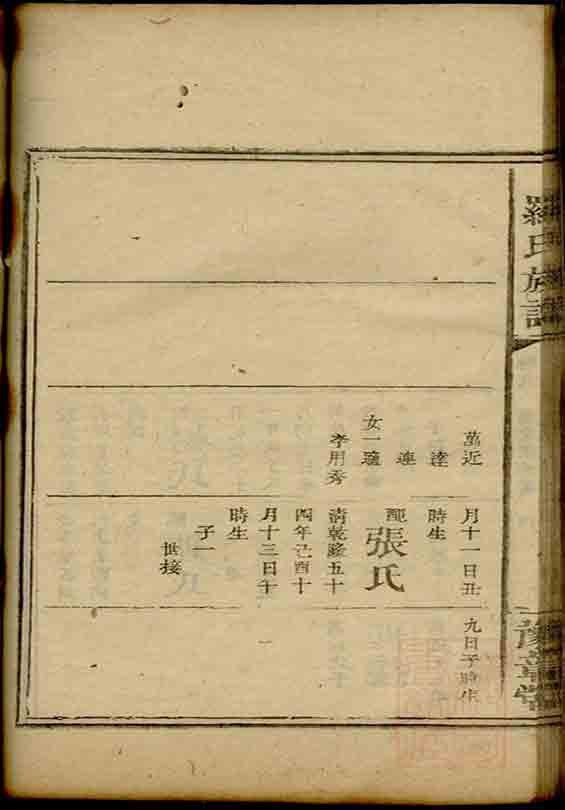 羅氏族譜
豫章堂
萬近
達
連
女一適
李用秀
月十一日丑
時生
配張氏
清乾隆五十
四年己酉十
月十三日午
時生
子一
世接
九日子時生